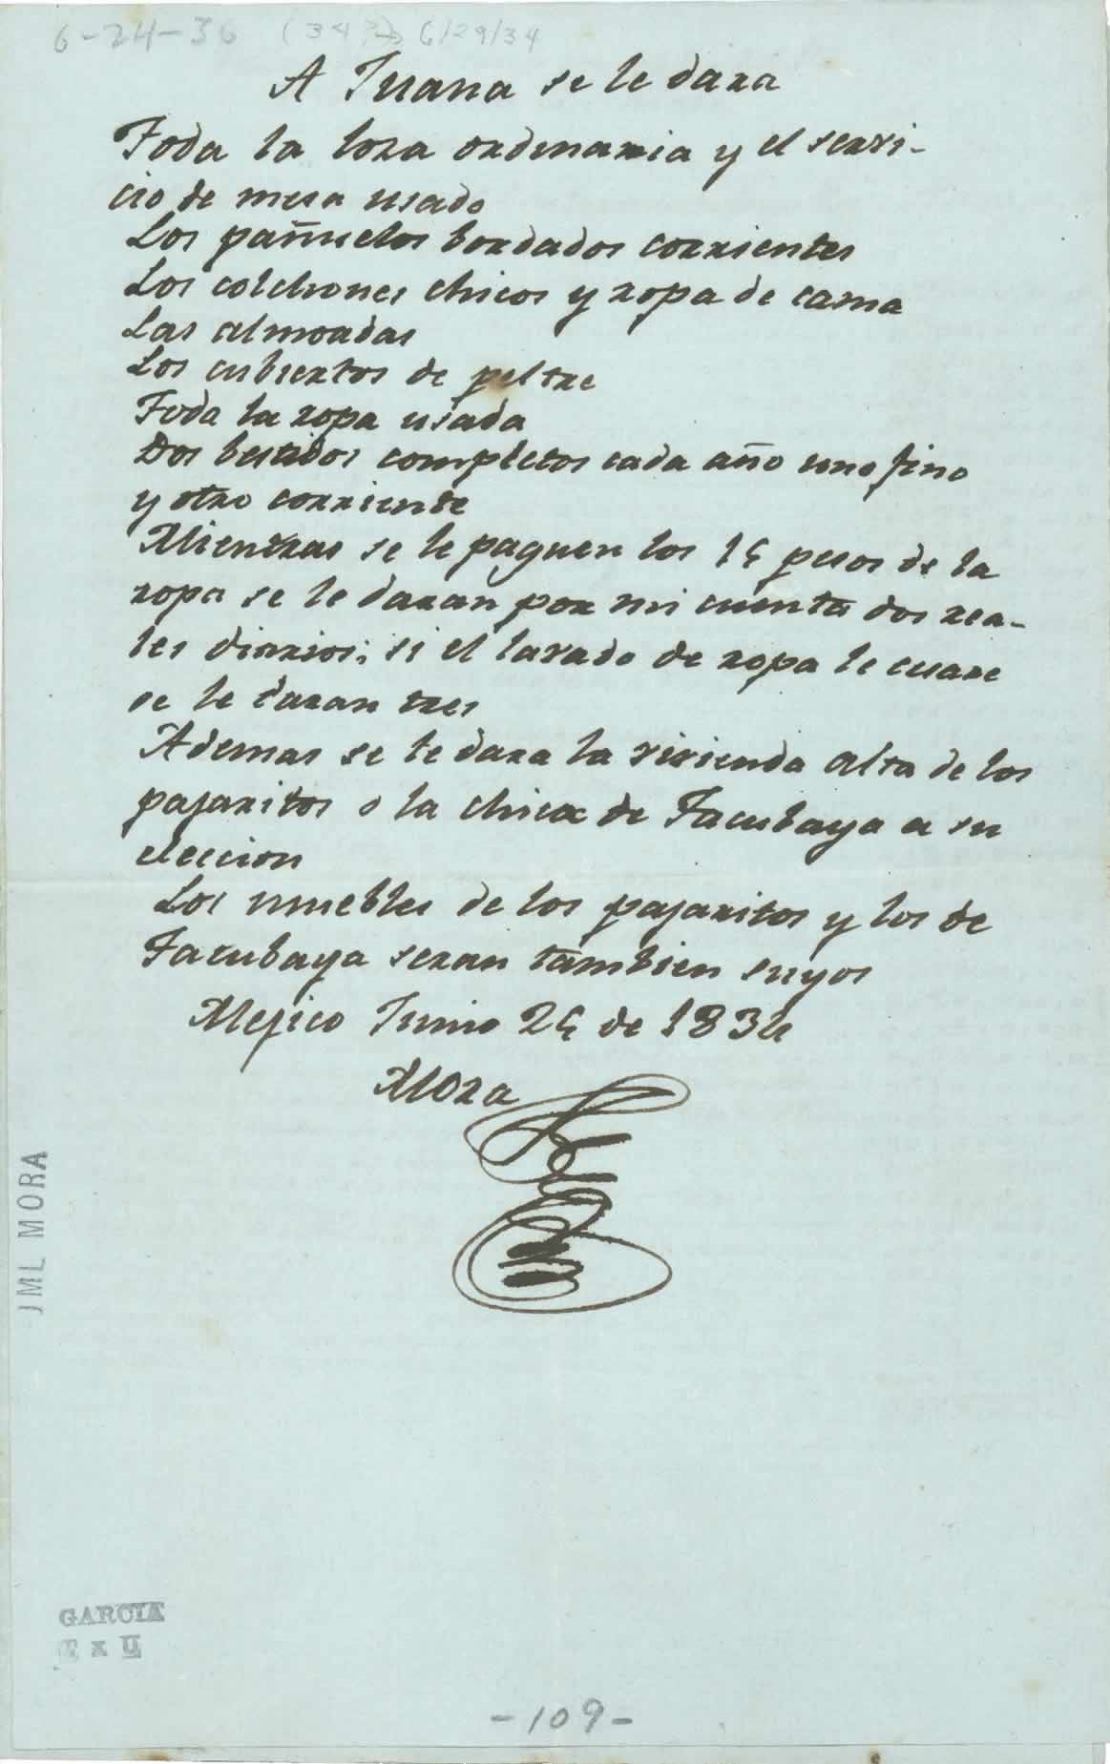 6-24-36 (34?→ 6/29/34
A Juana se le dara
Toda la loza ordinaria y el servi-
cio de mesa usado
Los pañuelos bordados corrientes
Los colchones chicos y ropa de cama
Las almoadas
Los cubiertos de peltre
Toda la ropa usada
Dos bestidos completos cada año uno fino
y otro corriente
Mientras se le paguen los 15 pesos de la
ropa se le daran por mi cuenta dos rea-
les diarios; si el lavado de ropa le cesare
se le daran tres
Ademas se le dara la vivienda alta de los
pajaritos o la chica de Tacubaya a su
eleccion
Los muebles de los pajaritos y los de
Tacubaya seran tambien suyos
Mejico Junio 24 de 1834
Mora
JML MORA
GARCIA
-109-